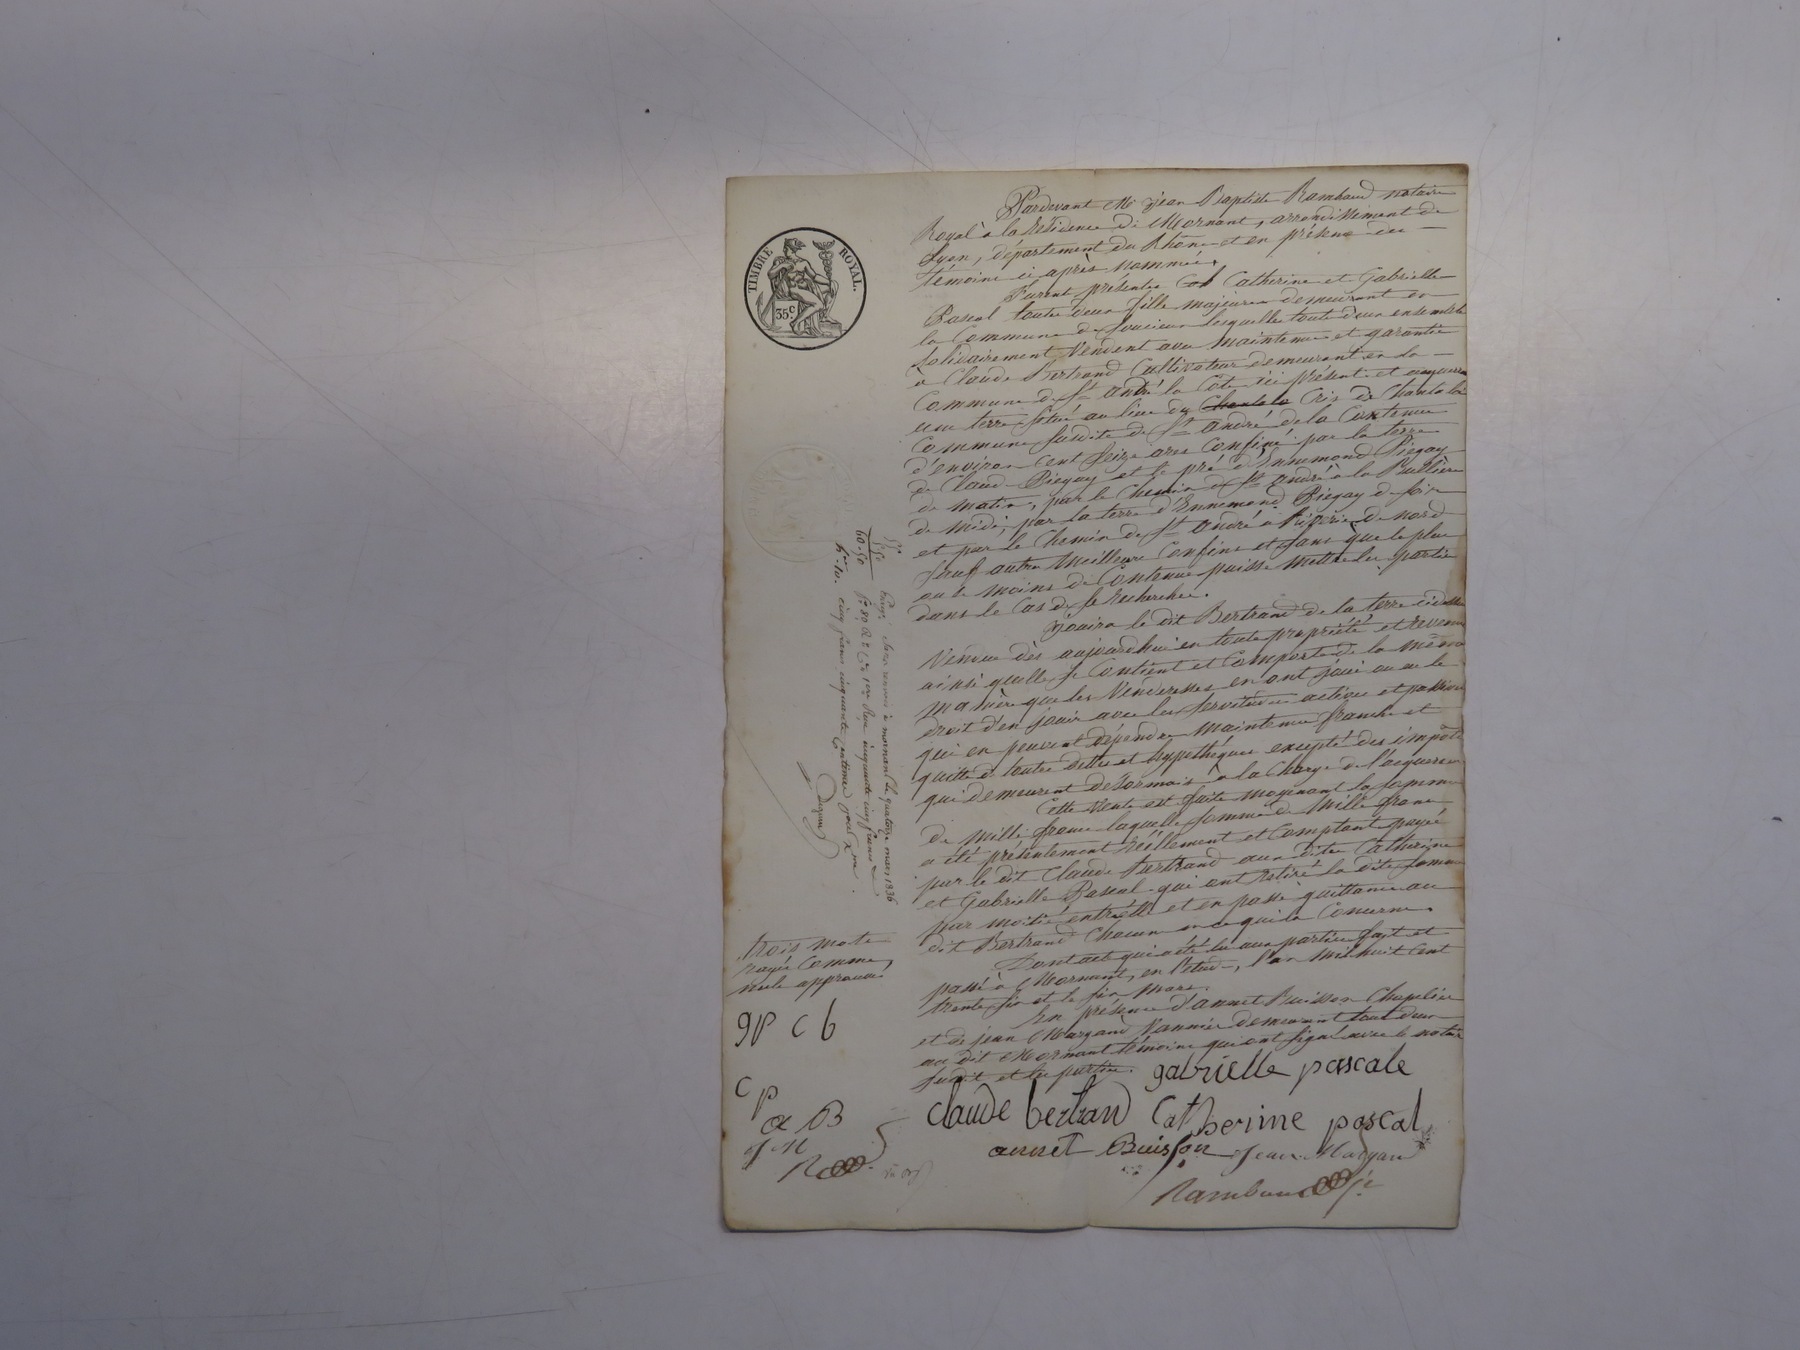 TIMBRE ROYAL.
35 c.
Pardevant Me jean Baptiste Rambaud notaire
Royal à la Résidence de Mornant, arrondissement de
Lyon, département du Rhône et en présence des
témoins ci après nommés.
Furent présentes Catherine et Gabrielle
Pascal toutes deux fille majeures demeurant en
la Commune de Soucieu lesquelle toute deux ensemble
Solidairement Vendent avec maintenue et garantie
à Claude Bertrand Cultivateur demeurant en la
Commune de St andré la Côte ici présent et acquereur
une terre située au lieu du Cris de Chantaloi
Commune susdite de St andré de la Contenue
d'environ Cent Seize ares Confiné par la terre
de Claude Piegay et le pré d'Ennemond Piegay
de matin, par le Chemin de St andré à la Rullière
de midi, par la terre d'Ennemond Piegay de soir
et par le Chemin de St andré à de nord
Sauf autre Meilleure Confins et sans que le plus
ou le moins de Contenue puisse mettre les partie
dans le Cas de se Rechercher.
jouira le dit Bertrand de la terre ci dessus
Vendue dès aujourd'hui en toute propriété et revenu
ainsi qu'elle se Contient et Comporte de la même
manière que les Venderesses en ont joui ou eu le
droit d'en jouir avec les servitudes actives et passives
qui en peuvent dépendre maintenue franche et
quitte de toute dettes et hypothéques excepté des impôts
qui demeurent desormais à la Charge de l'acquereur
Cette Vente est faite moyenant la somme
de mille franc laquelle somme de Mille franc
a été présentement Réellement et Comptant payée
par le dit Claude Bertrand aux dites Catherine
et Gabrielle Pascal qui ont Retiré la dite somme
par moitié entr'elle et en passe quittance au
dit Bertrand Chacun en ce qui la Concerne.
Dont acte qui a été lu aux partie fait et
passé à Mornant, en l'etude, l'an mil huit Cent
trente six et le six Mars.
En présence d'annet Buisson Chapelier
et de jean Margand Vannier demeurant tout deux
au dit Mornant témoins qui ont signé avec le notaire
Susdit et les partie.
gabrielle pascale
claude bertrand Catherine pascal
annet Buisson Jean Margand
Rambaud
trois mots
rayés Comme
nuls approuvé
gp c b
c p
a B
J M
R
55
5.50
60.50
Enrgé sans renvoi à mornant le quatorze mars 1836
fo 80 Rcinquante cinq francs
cinq francs cinquante centimes pour